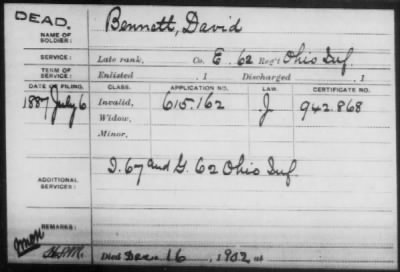 DEAD.
NAME OF SOLDIER: Bennett, David
SERVICE: Late rank, Co. E. 62 Reg't Ohio Inf.
TERM OF SERVICE: Enlisted , 1 Discharged , 1
DATE OF FILING. CLASS. APPLICATION NO. LAW. CERTIFICATE NO.
1887 July 6 Invalid, 615.162 J 942.868
Widow,
Minor,
ADDITIONAL SERVICES: I. 67 and G. 62 Ohio Inf
REMARKS:
Died Dec. 16, 1902 at